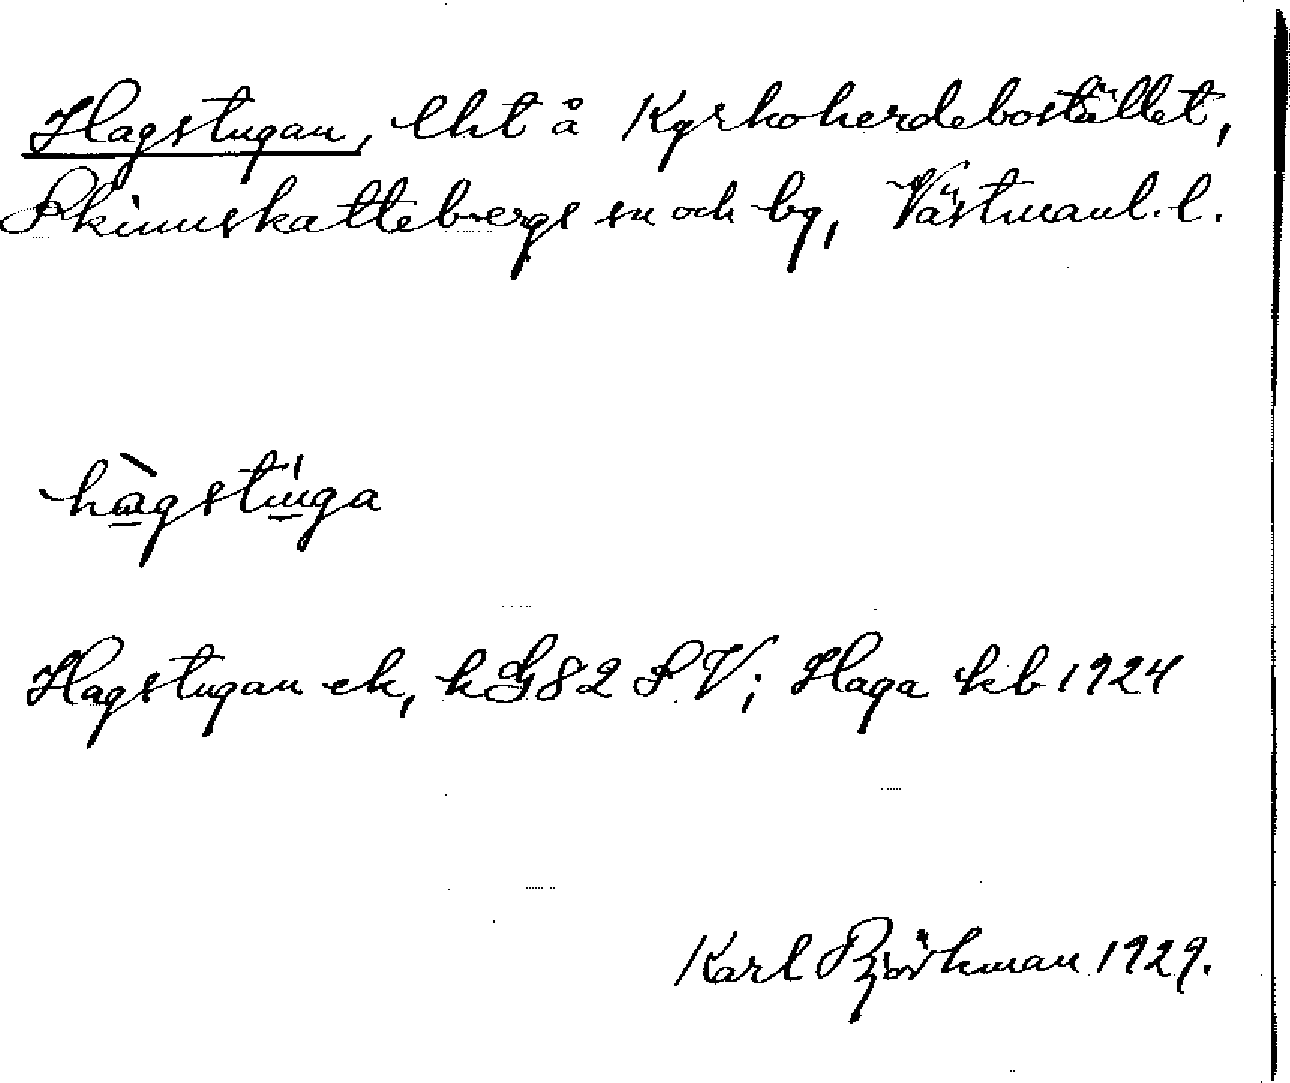 Hagstugan, lht å Kyrkoherdebostället,
Skinnskattebergs sn och by, Västmanl. l.
hàgstúga
Hagstugan ek, k G82 S.V; Haga kb 1924
Karl Björkman 1929.